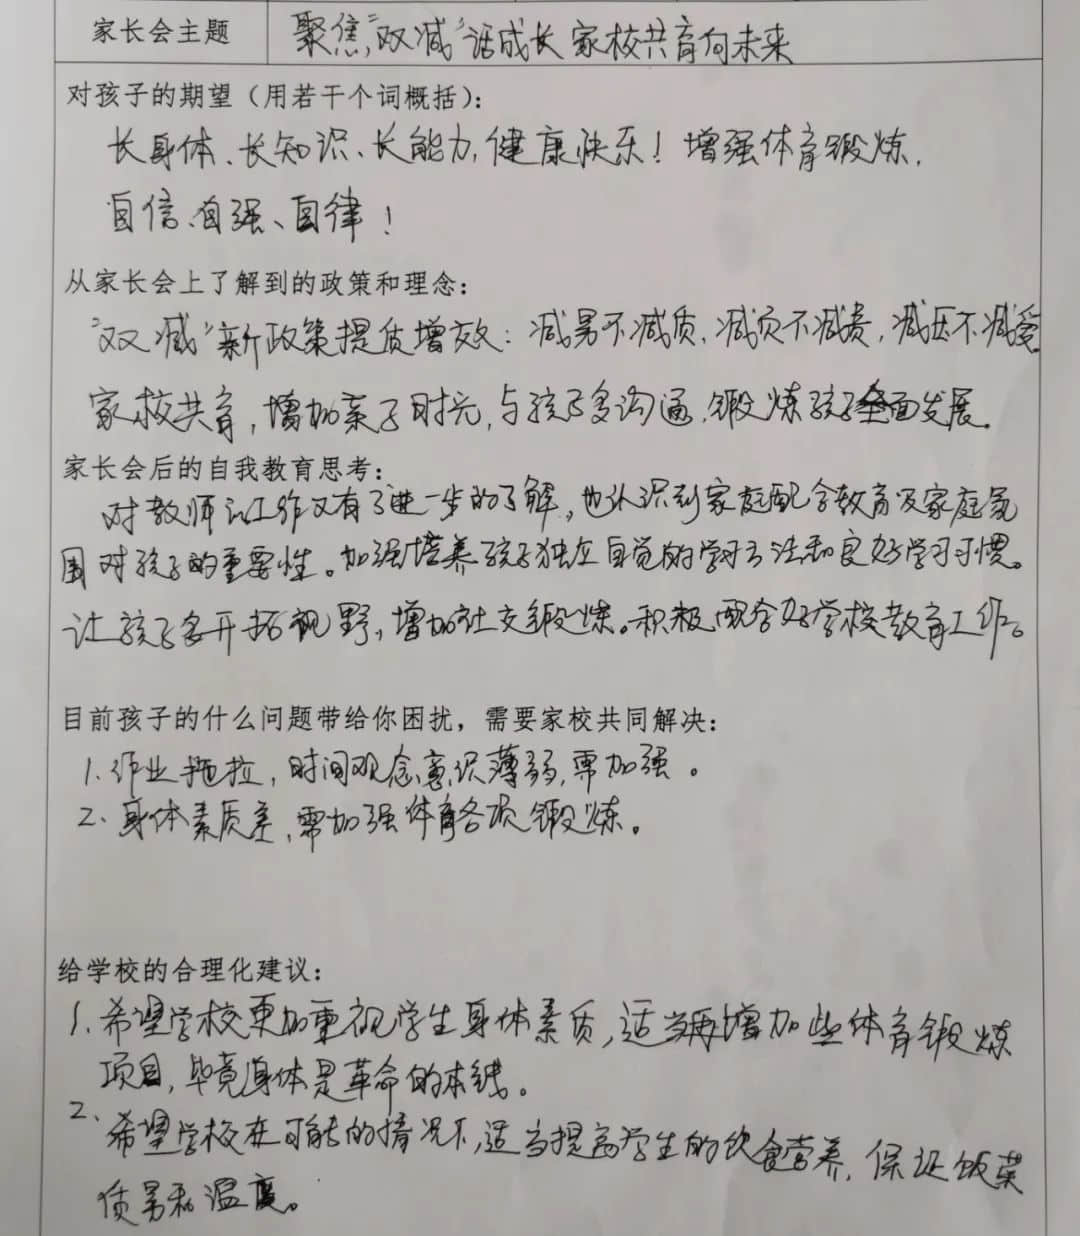 家长会主题 聚焦"双减"话成长 家校共育向未来
对孩子的期望（用若干个词概括）：
长身体、长知识、长能力,健康快乐！增强体育锻炼,
自信、自强、自律！
从家长会上了解到的政策和理念：
"双减"新政策提质增效：减量不减质,减负不减责,减压不减爱
家校共育,增加亲子时光,与孩子多沟通,锻炼孩子全面发展。
家长会后的自我教育思考：
对教师工作又有了进一步的了解,也认识到家庭配合教育及家庭氛
围对孩子的重要性。加强培养孩子独立自觉的学习方法和良好学习习惯。
让孩子多开拓视野,增加社交锻炼。积极配合好学校教育工作。
目前孩子的什么问题带给你困扰，需要家校共同解决：
1.作业拖拉,时间观念意识薄弱,需加强。
2、身体素质差,需加强体育各项锻炼。
给学校的合理化建议：
1.希望学校更加重视学生身体素质,适当再增加些体育锻炼
项目,毕竟身体是革命的本钱。
2、希望学校在可能的情况下,适当提高学生的饮食营养,保证饭菜
质量和温度。